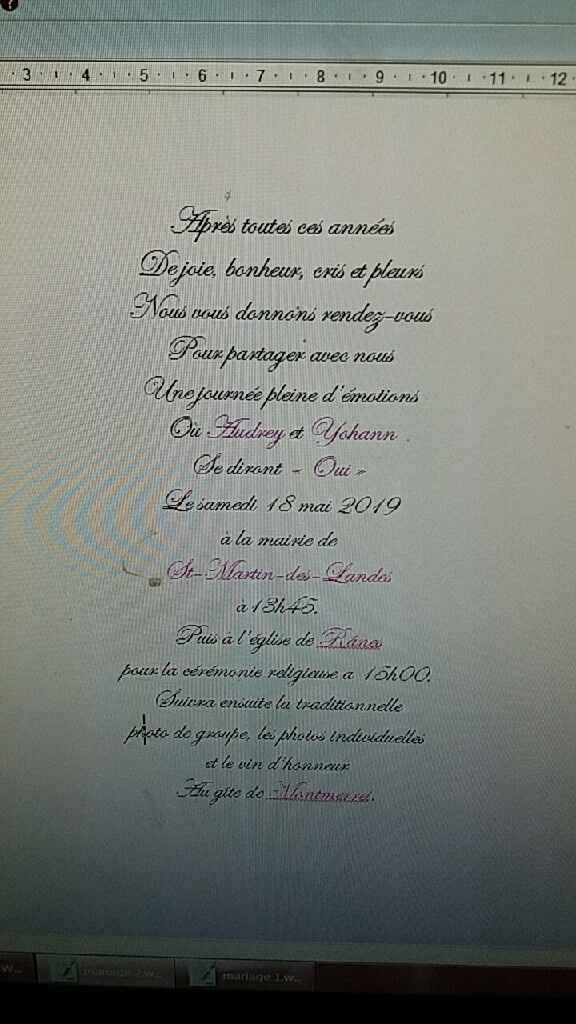 3 4 5 6 7 8 9 10 11 12
Après toutes ces années
De joie, bonheur, cris et pleurs
Nous vous donnons rendez-vous
Pour partager avec nous
Une journée pleine d'émotions
Où Audrey et Yohann
Se diront « Oui »
Le samedi 18 mai 2019
à la mairie de
St-Martin-des-Landes
à 13h45.
Puis à l'église de Rânes
pour la cérémonie religieuse a 15h00.
Suivra ensuite la traditionnelle
photo de groupe, les photos individuelles
et le vin d'honneur
Au gîte de Montmerrei.
mariage 2.w... mariage 1.w...